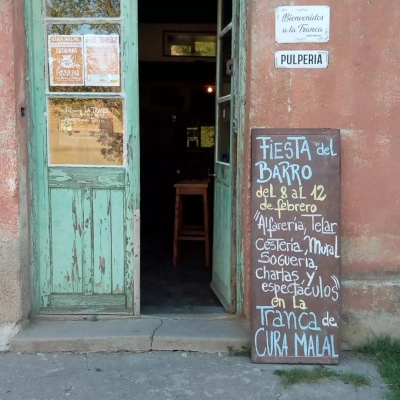 Bienvenidos
a la Tranca
PULPERIA
FIESTA del
BARRO
del 8 al 12
de febrero
"Alfarería, Telar
Cestería, Mural
Soguería,
charlas, y
espectáculos"
en la
TRANCA de
CURA MALAL
CURA MALAL
FIESTA
LA TRANCA